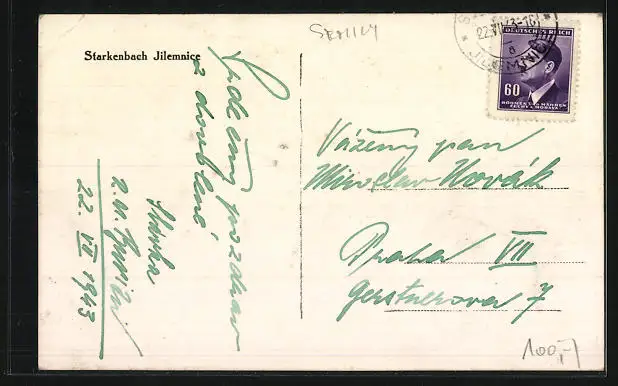 SEMILY
Starkenbach Jilemnice
Srdečný pozdrav
z dovolené
22. VII 1943
22.VII.43-16
JILEMNICE
DEUTSCHES REICH
60
BÖHMEN UND MÄHREN
ČECHY A MORAVA
Vážený pan
Miroslav Novák
Praha VII
Gerstnerova 7
100,-